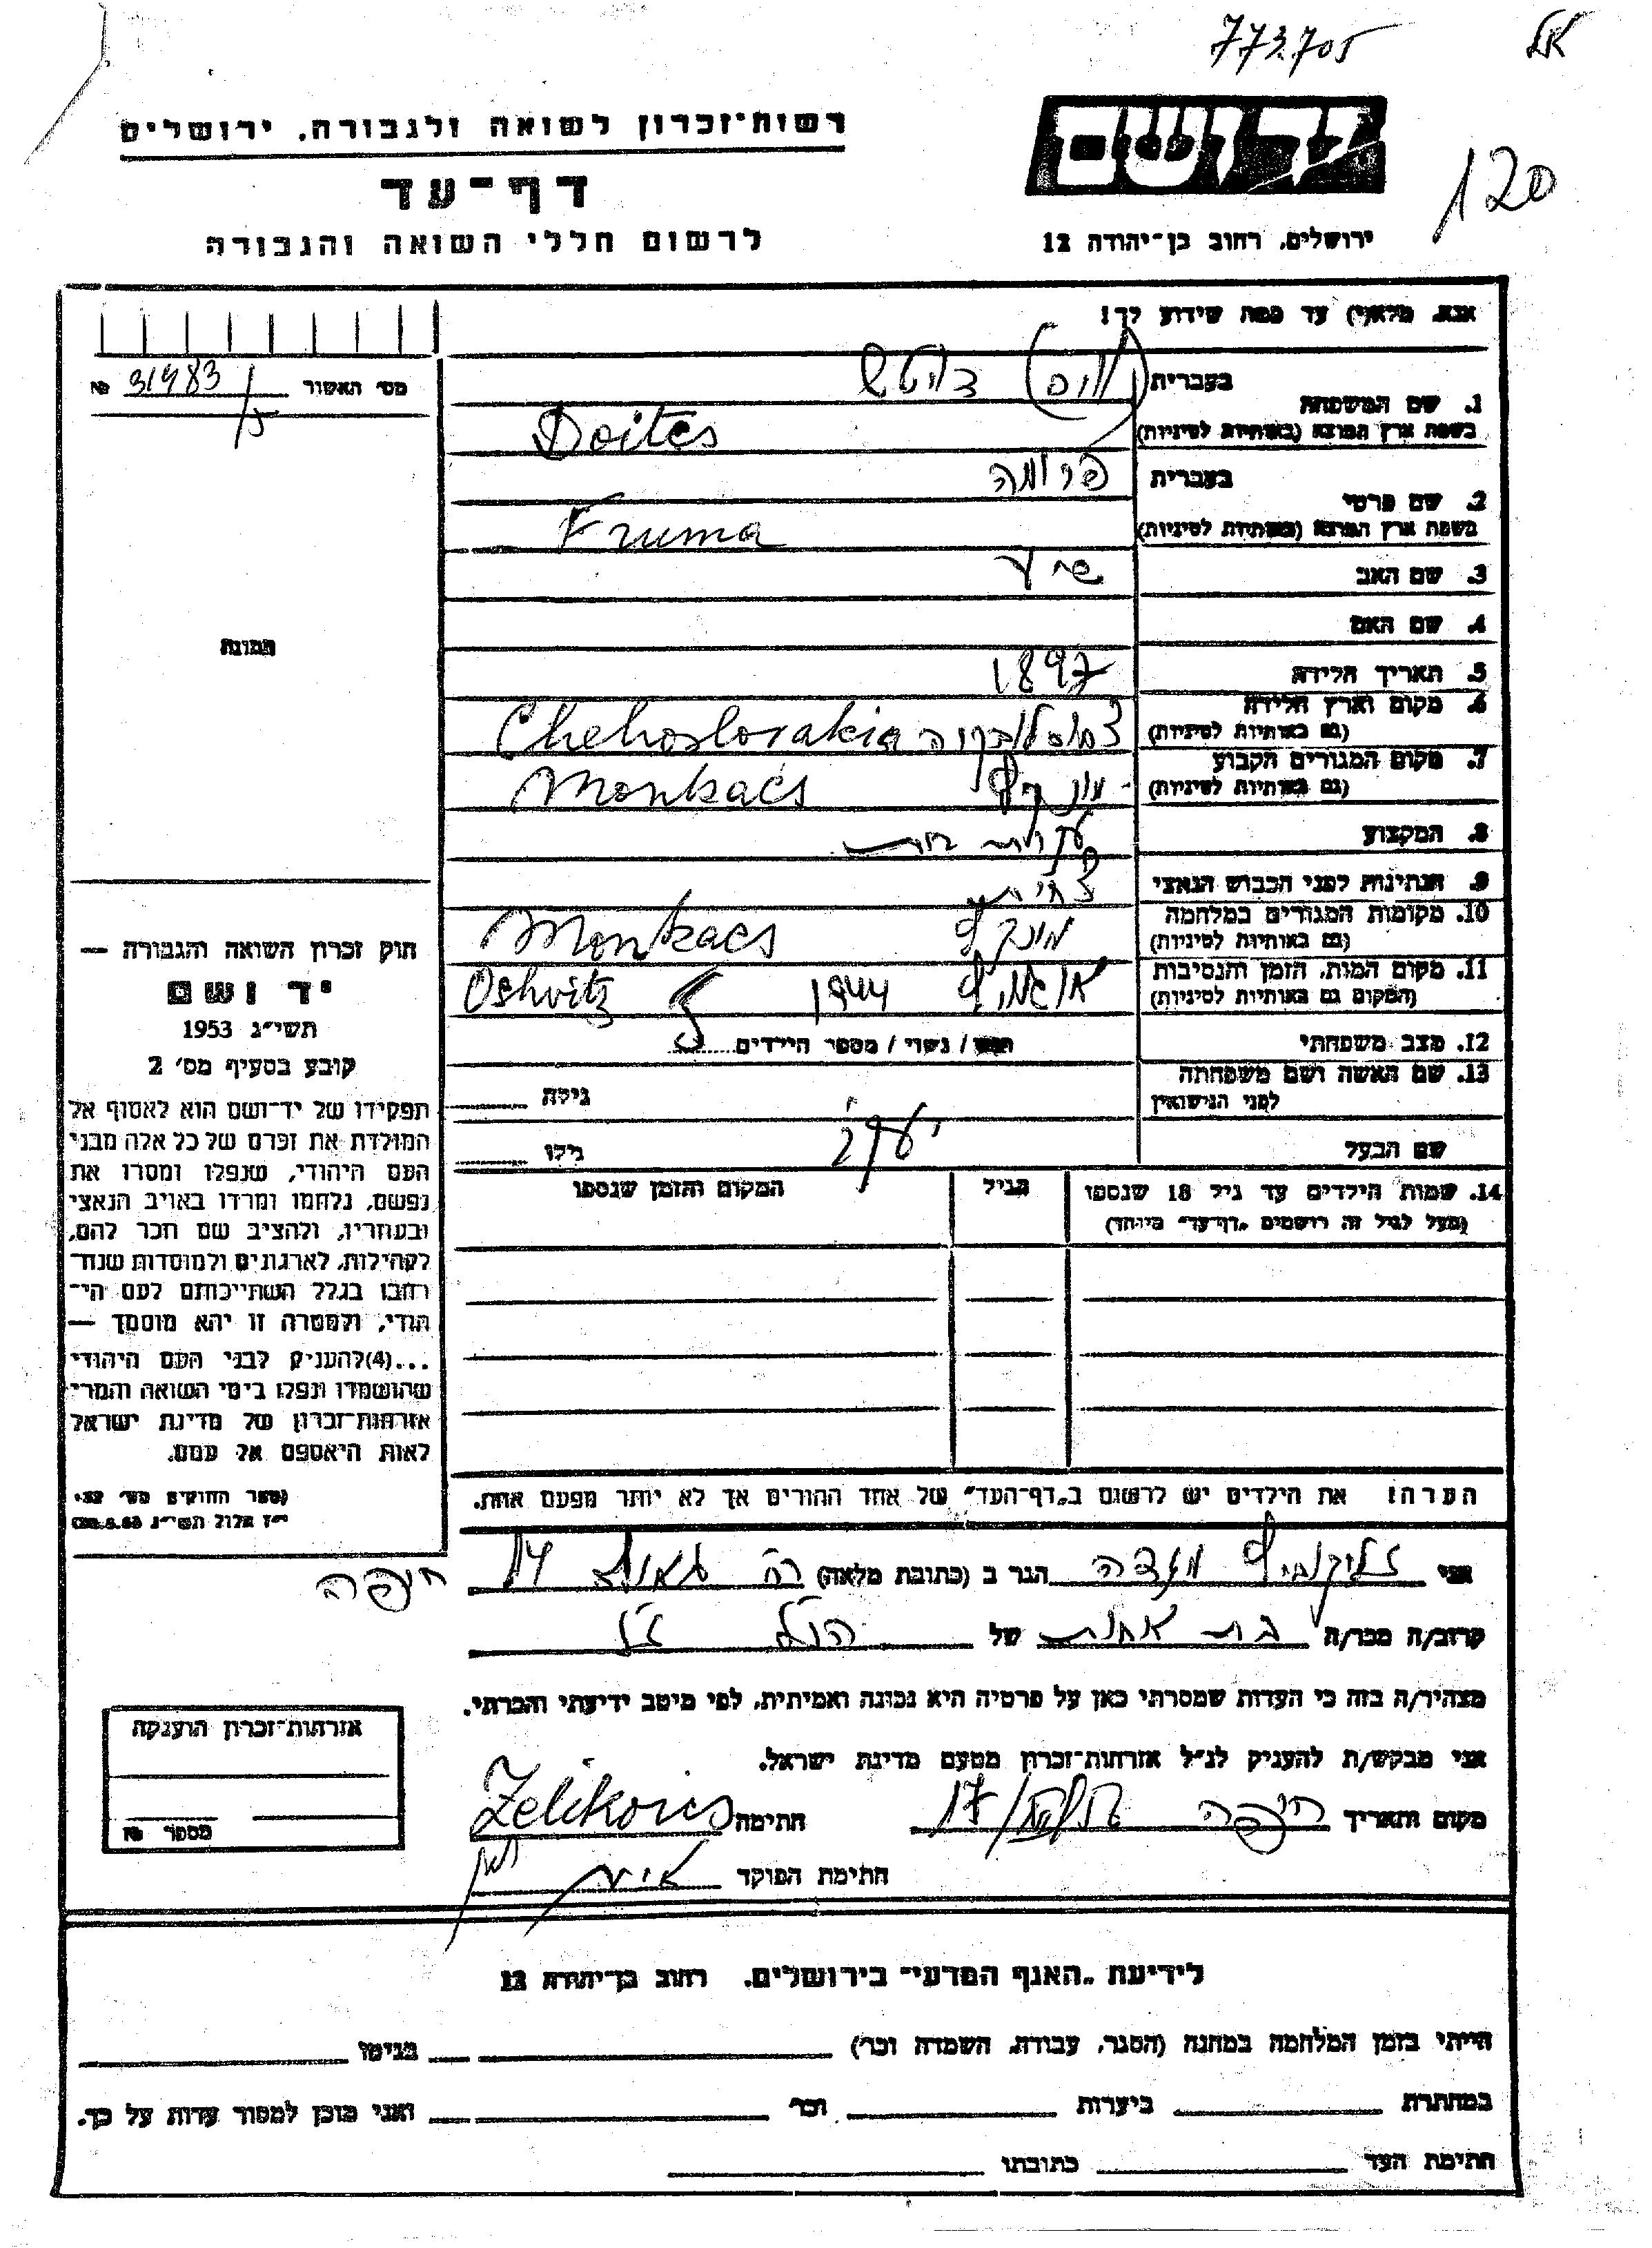 773.705
120
יד ושם
רשות־זכרון לשואה ולגבורה, ירושלים
דף־עד
לרשום חללי השואה והגבורה
ירושלים, רחוב בן־יהודה 12
אנא, מלא(י) עד כמה שידוע לך!
מס׳ האשור 31983 №
/5
1. שם המשפחה
בעברית דויטש
בשפת ארץ המוצא (באותיות לטיניות) Doites
2. שם פרטי
בעברית פרומה
בשפת ארץ המוצא (באותיות לטיניות) Fruma
3. שם האב
4. שם האם
5. תאריך הלידה 1897
6. מקום וארץ הלידה
(גם באותיות לטיניות) Chehoslovakia
7. מקום המגורים הקבוע
(גם באותיות לטיניות) Monkacs
8. המקצוע עקרת בית
9. הנתינות לפני הכבוש הנאצי
10. מקומות המגורים במלחמה
(גם באותיות לטיניות) Monkacs
11. מקום המות, הזמן והנסיבות
(המקום גם באותיות לטיניות) 1944 Oshvitz
12. מצב משפחתי
רווק / נשוי / מספר הילדים
13. שם האשה ושם משפחתה
לפני הנישואין
גילה
שם הבעל
גילו
14. שמות הילדים עד גיל 18 שנספו
(מעל לגיל זה רושמים „דף־עד״ מיוחד)
הגיל
המקום והזמן שנספו
הערה: את הילדים יש לרשום ב„דף־העד״ של אחד ההורים אך לא יותר מפעם אחת.
תמונה
חוק זכרון השואה והגבורה —
יד ושם
תשי״ג 1953
קובע בסעיף מס׳ 2
תפקידו של יד־ושם הוא לאסוף אל
המולדת את זכרם של כל אלה מבני
העם היהודי, שנפלו ומסרו את
נפשם, נלחמו ומרדו באויב הנאצי
ובעוזריו, ולהציב שם וזכר להם,
לקהילות, לארגונים ולמוסדות שנח־
רבו בגלל השתייכותם לעם הי־
הודי, ולמטרה זו יהא מוסמך —
...(4)להעניק לבני העם היהודי
שהושמדו ונפלו בימי השואה והמרי
אזרחות־זכרון של מדינת ישראל
לאות היאספם אל עמם.
(ספר החוקים מס׳ 132
י״ז אלול תשי״ג 28.8.53)
אני זליקוביץ מגדה הגר ב (כתובת מלאה) חיפה
קרוב/ה מכר/ה בת אחות של
מצהיר/ה בזה כי העדות שמסרתי כאן על פרטיה היא נכונה ואמיתית, לפי מיטב ידיעתי והכרתי.
אני מבקש/ת להעניק לנ״ל אזרחות־זכרון מטעם מדינת ישראל.
מקום ותאריך חיפה חתימה Zelikovics
חתימת הפוקד
אזרחות־זכרון הוענקה
מספר №
לידיעת „האגף המדעי״ בירושלים, רחוב בן־יהודה 12
הייתי בזמן המלחמה במחנה (הסגר, עבודה, השמדה וכו׳) בגיטו
במחתרת ביערות וכו׳ ואני מוכן למסור עדות על כך.
חתימת העד כתובתו